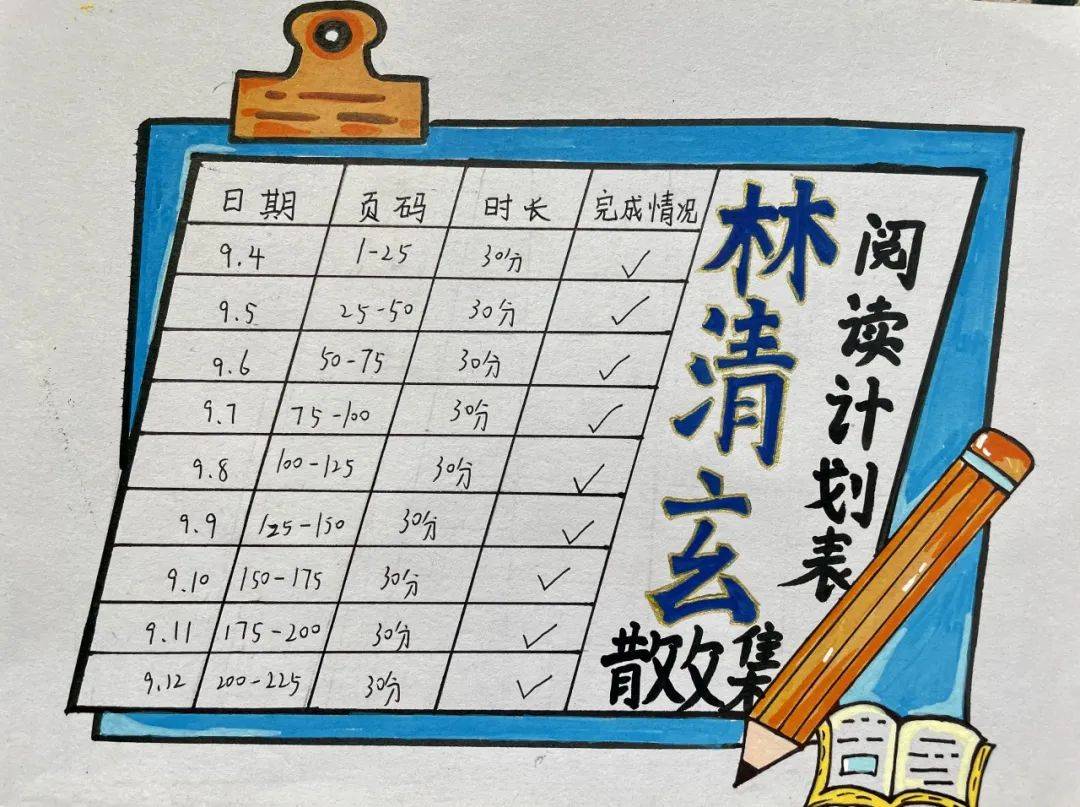 日期 页码 时长 完成情况
9.4 1-25 30分 ✓
9.5 25-50 30分 ✓
9.6 50-75 30分 ✓
9.7 75-100 30分 ✓
9.8 100-125 30分 ✓
9.9 125-150 30分 ✓
9.10 150-175 30分 ✓
9.11 175-200 30分 ✓
9.12 200-225 30分 ✓
林清玄
散文集
阅读计划表